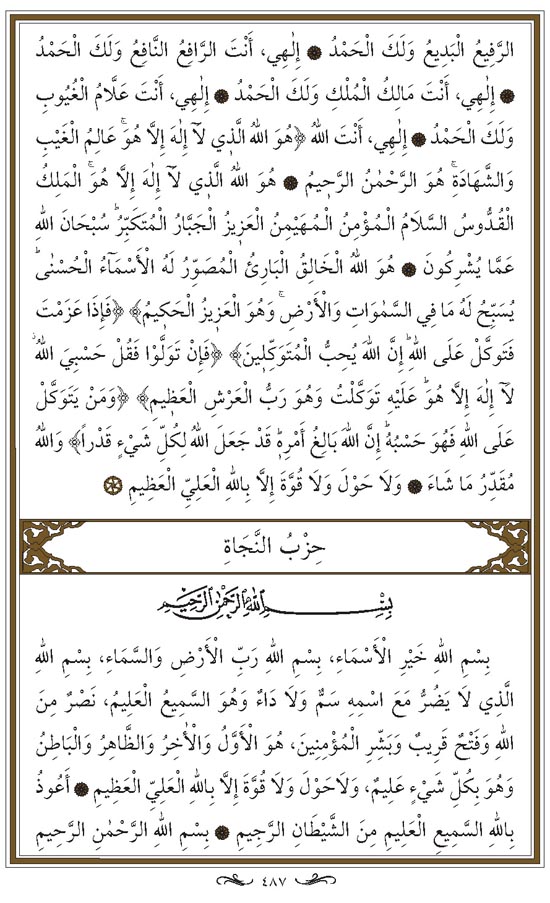 الرَّفِيعُ الْبَدِيعُ وَلَكَ الْحَمْدُ ۞ إِلٰهِي، أَنْتَ الرَّافِعُ النَّافِعُ وَلَكَ الْحَمْدُ
۞ إِلٰهِي، أَنْتَ مَالِكُ الْمُلْكِ وَلَكَ الْحَمْدُ ۞ إِلٰهِي، أَنْتَ عَلَّامُ الْغُيُوبِ
وَلَكَ الْحَمْدُ ۞ إِلٰهِي، أَنْتَ اللهُ ﴿هُوَ اللهُ الَّذِي لَآ إِلٰهَ إِلَّا هُوَۚ عَالِمُ الْغَيْبِ
وَالشَّهَادَةِۚ هُوَ الرَّحْمٰنُ الرَّحِيمُ ۞ هُوَ اللهُ الَّذِي لَآ إِلٰهَ إِلَّا هُوَۚ الْمَلِكُ
الْقُدُّوسُ السَّلَامُ الْمُؤْمِنُ الْمُهَيْمِنُ الْعَزِيزُ الْجَبَّارُ الْمُتَكَبِّرُۜ سُبْحَانَ اللهِ
عَمَّا يُشْرِكُونَ ۞ هُوَ اللهُ الْخَالِقُ الْبَارِئُ الْمُصَوِّرُ لَهُ الْأَسْمَآءُ الْحُسْنٰىۜ
يُسَبِّحُ لَهُ مَا فِي السَّمٰوَاتِ وَالْأَرْضِۚ وَهُوَ الْعَزِيزُ الْحَكِيمُ﴾ ﴿فَإِذَا عَزَمْتَ
فَتَوَكَّلْ عَلَى اللهِۜ إِنَّ اللهَ يُحِبُّ الْمُتَوَكِّلِينَ﴾ ﴿فَإِنْ تَوَلَّوْا فَقُلْ حَسْبِيَ اللهُۘ
لَآ إِلٰهَ إِلَّا هُوَۜ عَلَيْهِ تَوَكَّلْتُ وَهُوَ رَبُّ الْعَرْشِ الْعَظِيمِ﴾ ﴿وَمَنْ يَتَوَكَّلْ
عَلَى اللهِ فَهُوَ حَسْبُهُۜ إِنَّ اللهَ بَالِغُ أَمْرِهِۜ قَدْ جَعَلَ اللهُ لِكُلِّ شَيْءٍ قَدْراً﴾ وَاللهُ
مُقَدِّرُ مَا شَاءَ ۞ وَلَا حَوْلَ وَلَا قُوَّةَ إِلَّا بِاللهِ الْعَلِيِّ الْعَظِيمِ ۞
حِزْبُ النَّجَاةِ
بِسْمِ اللهِ الرَّحْمٰنِ الرَّحِيمِ
بِسْمِ اللهِ خَيْرِ الْأَسْمَاءِ، بِسْمِ اللهِ رَبِّ الْأَرْضِ وَالسَّمَاءِ، بِسْمِ اللهِ
الَّذِي لَا يَضُرُّ مَعَ اسْمِهِ سَمٌّ وَلَا دَاءٌ وَهُوَ السَّمِيعُ الْعَلِيمُ، نَصْرٌ مِنَ
اللهِ وَفَتْحٌ قَرِيبٌ وَبَشِّرِ الْمُؤْمِنِينَ، هُوَ الْأَوَّلُ وَالْأٰخِرُ وَالظَّاهِرُ وَالْبَاطِنُ
وَهُوَ بِكُلِّ شَيْءٍ عَلِيمٌ، وَلَاحَوْلَ وَلَا قُوَّةَ إِلَّا بِاللهِ الْعَلِيِّ الْعَظِيمِ ۞ أَعُوذُ
بِاللهِ السَّمِيعِ الْعَلِيمِ مِنَ الشَّيْطَانِ الرَّجِيمِ ۞ بِسْمِ اللهِ الرَّحْمٰنِ الرَّحِيمِ
٤٨٧